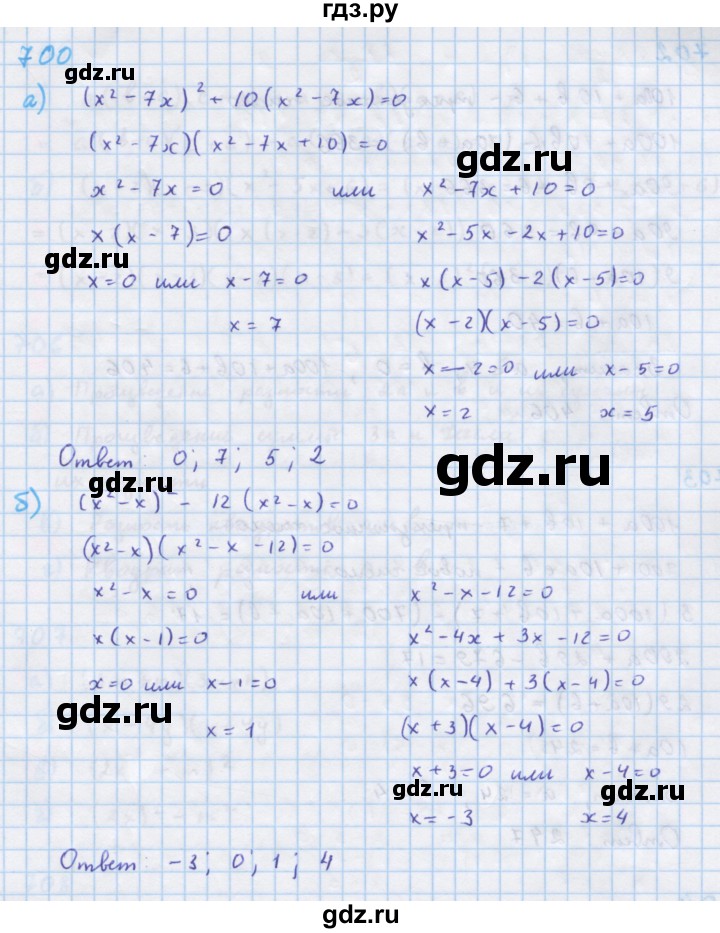 гдз.ру
700
gdz.ru
а) (x² - 7x)² + 10(x² - 7x) = 0
(x² - 7x)(x² - 7x + 10) = 0
gdz.ru
x² - 7x = 0 или x² - 7x + 10 = 0
x(x - 7) = 0 x² - 5x - 2x + 10 = 0
gdz.ru
x = 0 или x - 7 = 0 x(x - 5) - 2(x - 5) = 0
x = 7 (x - 2)(x - 5) = 0
x - 2 = 0 или x - 5 = 0
x = 2 x = 5
Ответ: 0; 7; 5; 2
gdz.ru
gdz.ru
б) (x² - x)² - 12(x² - x) = 0
(x² - x)(x² - x - 12) = 0
x² - x = 0 или x² - x - 12 = 0
x(x - 1) = 0 x² - 4x + 3x - 12 = 0
x = 0 или x - 1 = 0 x(x - 4) + 3(x - 4) = 0
gdz.ru
x = 1 (x + 3)(x - 4) = 0
x + 3 = 0 или x - 4 = 0
gdz.ru gdz.ru
x = -3 x = 4
Ответ: -3; 0; 1; 4
gdz.ru